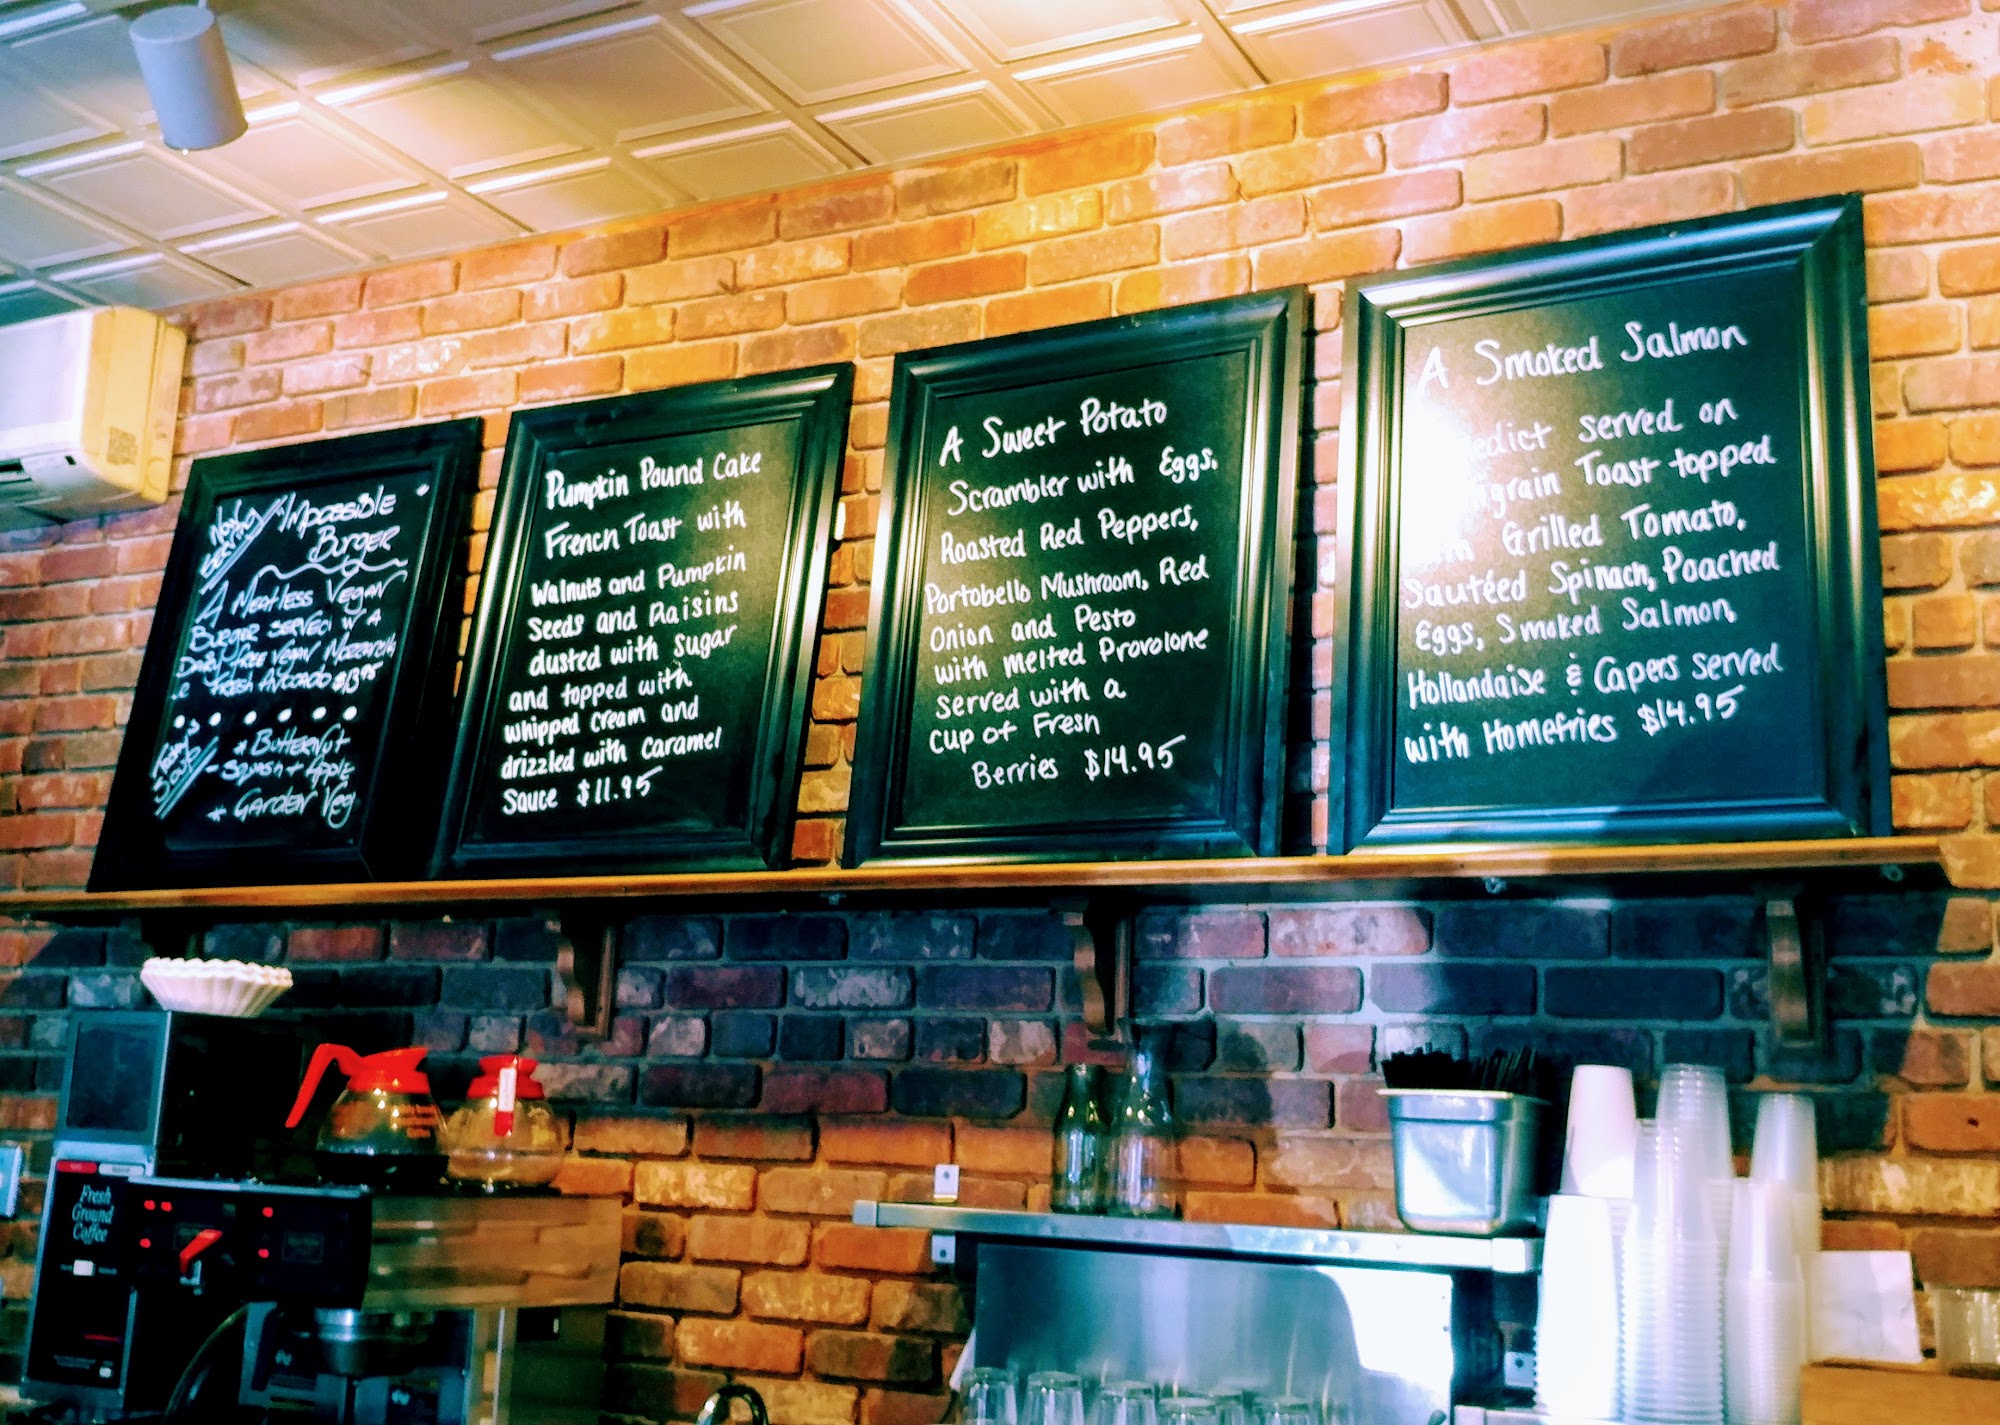 Now
Serving
"Impossible"
Burger
A Meatless Vegan
Burger served w/ A
Dairy free Vegan Mozzarella
& Fresh Avocado $13.95
Today's
Soups
* Butternut
Squash + Apple
* Garden Veg
Pumpkin Pound Cake
French Toast with
Walnuts and Pumpkin
Seeds and Raisins
dusted with Sugar
and topped with
whipped cream and
drizzled with caramel
Sauce $11.95
A Sweet Potato
Scrambler with Eggs,
Roasted Red Peppers,
Portobello Mushroom, Red
Onion and Pesto
with melted Provolone
served with a
cup of Fresh
Berries $14.95
A Smoked Salmon
served on
Toast topped
Grilled Tomato,
Sautéed Spinach, Poached
Eggs, Smoked Salmon,
Hollandaise & Capers served
with Homefries $14.95
Fresh
Ground
Coffee